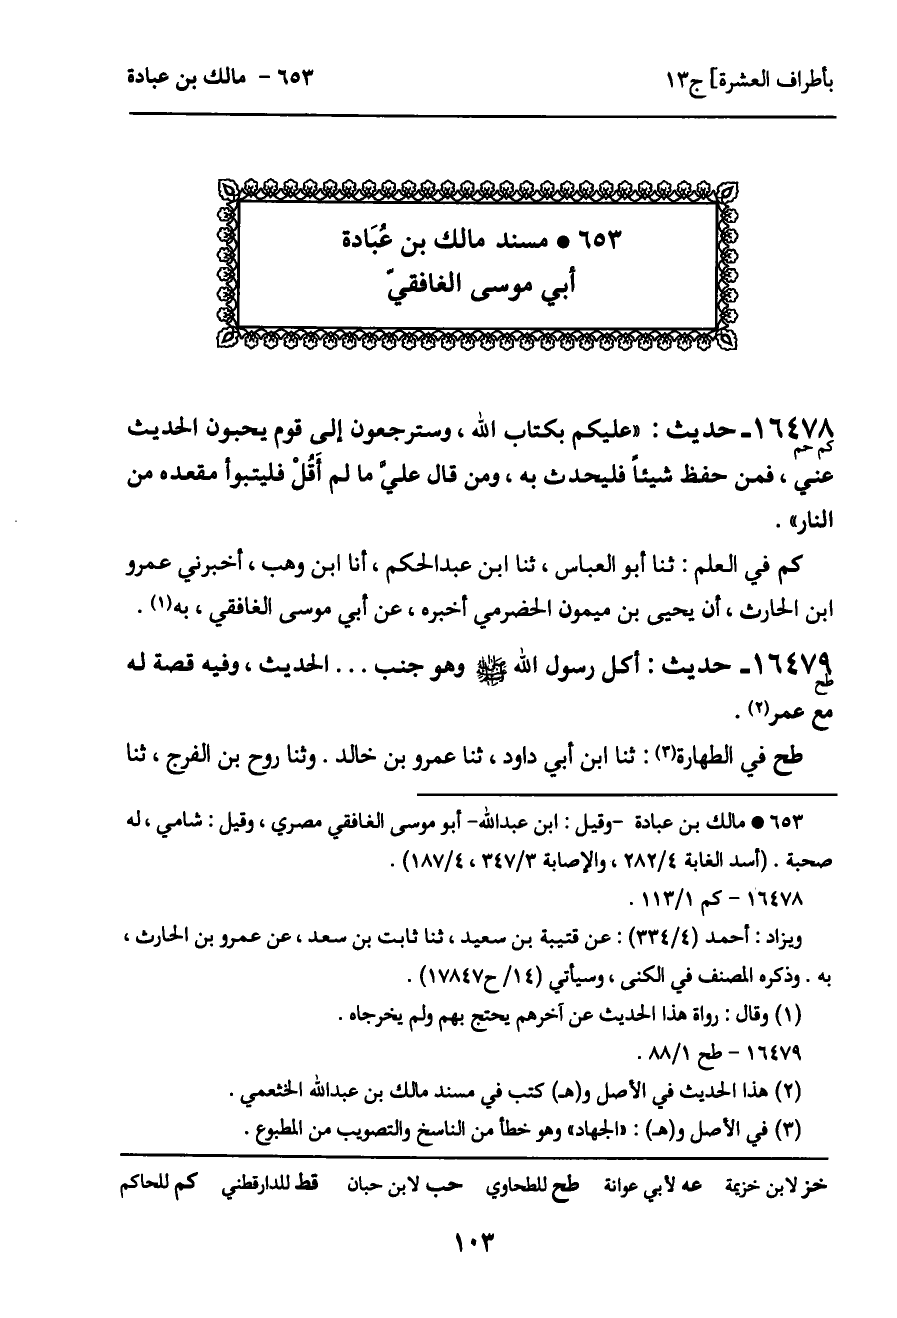 بأطراف العشرة] ج١٣
٦٥٣ - مالك بن عبادة
٦٥٣ ● مسند مالك بن عُبَادة
أبي موسى الغافقيّ
١٦٤٧٨ـ حديث : «عليكم بكتاب الله ، وسترجعون إلى قوم يحبون الحديث
كم حم
عني ، فمن حفظ شيئاً فليحدث به ، ومن قال عليَّ ما لم أَقُلْ فليتبوأ مقعده من
النار» .
كم في العلم : ثنا أبو العباس ، ثنا ابن عبدالحكم ، أنا ابن وهب ، أخبرني عمرو
ابن الحارث ، أن يحيى بن ميمون الحضرمي أخبره ، عن أبي موسى الغافقي ، به(١) .
١٦٤٧٩ـ حديث : أكل رسول الله ﷺ وهو جنب ... الحديث ، وفيه قصة له
طح
مع عمر(٢) .
طح في الطهارة(٣) : ثنا ابن أبي داود ، ثنا عمرو بن خالد . وثنا روح بن الفرج ، ثنا
٦٥٣ ● مالك بن عبادة -وقيل : ابن عبدالله- أبو موسى الغافقي مصري ، وقيل : شامي ، له
صحبة . (أسد الغابة ٢٨٢/٤ ، والإصابة ٣٤٧/٣ ، ١٨٧/٤) .
١٦٤٧٨ - كم ١١٣/١ .
ويزاد : أحمد (٣٣٤/٤) : عن قتيبة بن سعيد ، ثنا ثابت بن سعد ، عن عمرو بن الحارث ،
به . وذكره المصنف في الكنى ، وسيأتي (١٤/ح١٧٨٤٧) .
(١) وقال : رواة هذا الحديث عن آخرهم يحتج بهم ولم يخرجاه .
١٦٤٧٩ - طح ٨٨/١ .
(٢) هذا الحديث في الأصل و(هـ) كتب في مسند مالك بن عبدالله الخثعمي .
(٣) في الأصل و(هـ) : «الجهاد» وهو خطأ من الناسخ والتصويب من المطبوع .
خز لابن خزيمة عه لأبي عوانة طح للطحاوي حب لابن حبان قط للدارقطني كم للحاكم
١٠٣